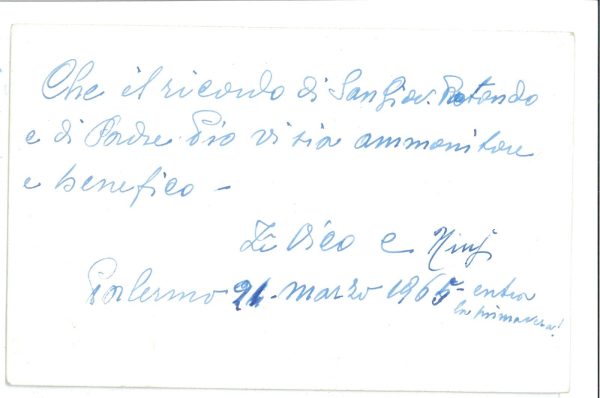 Che il ricordo di San Giov. Rotondo
e di Padre Pio vi sia ammonitore
e benefico -
Zi Vico e Ninì
Palermo 21 - marzo 1965 - entra
la primavera!